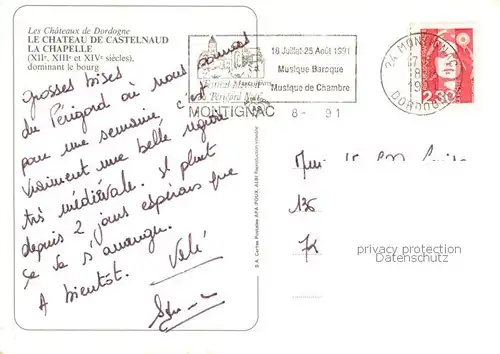 Les Châteaux de Dordogne
LE CHATEAU DE CASTELNAUD
LA CHAPELLE
(XIIe, XIIIe et XIVe siècles),
dominant le bourg
Grosses bises
du Périgord où nous sommes
pour une semaine, c'est
vraiment une belle région
très médiévale. Il pleut
depuis 2 jours espérons que
ça va s'arranger.
A bientôt.
18 Juillet-25 Août 1991
Musique Baroque
Musique de Chambre
Festival Montignac
du Périgord Noir
MONTIGNAC
8 - 91
24 MONTIGNAC
DORDOGNE
2,30
S.A. Cartes Postales APA-POUX, ALBI Reproduction interdite
136
75
privacy protection
Datenschutz